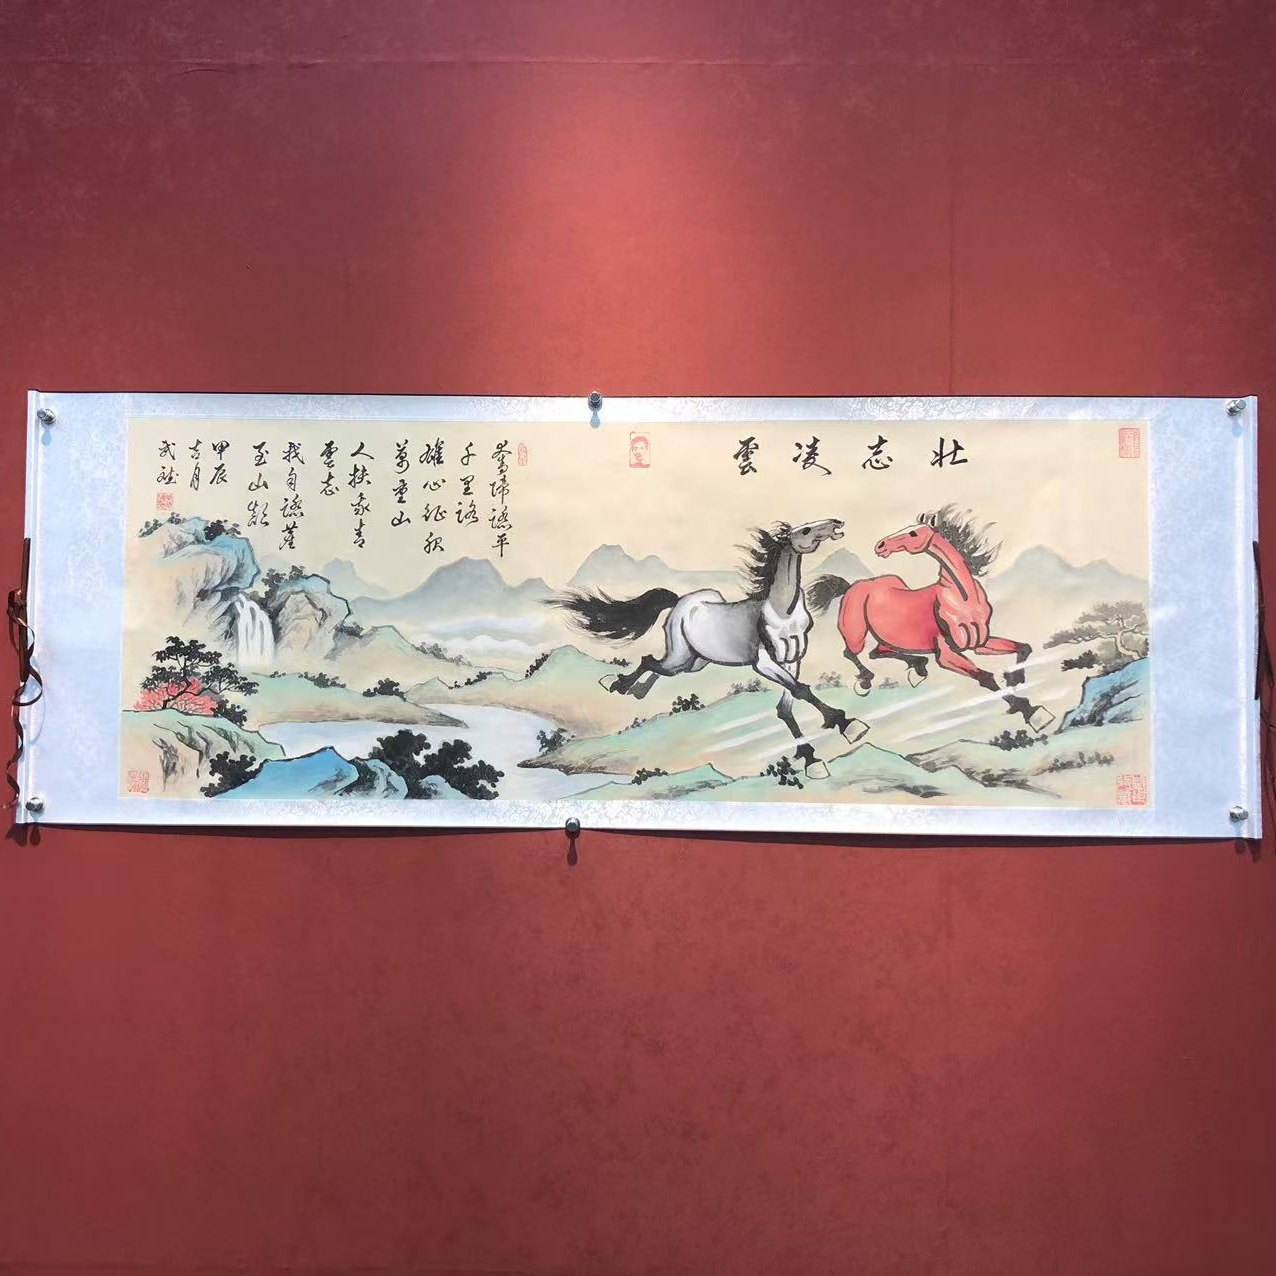 壮志凌雲
奮蹄踏平
千里路
雄心征服
萬重山
人扶青
雲志
我自踏崖
至山巔
甲辰
吉月
武